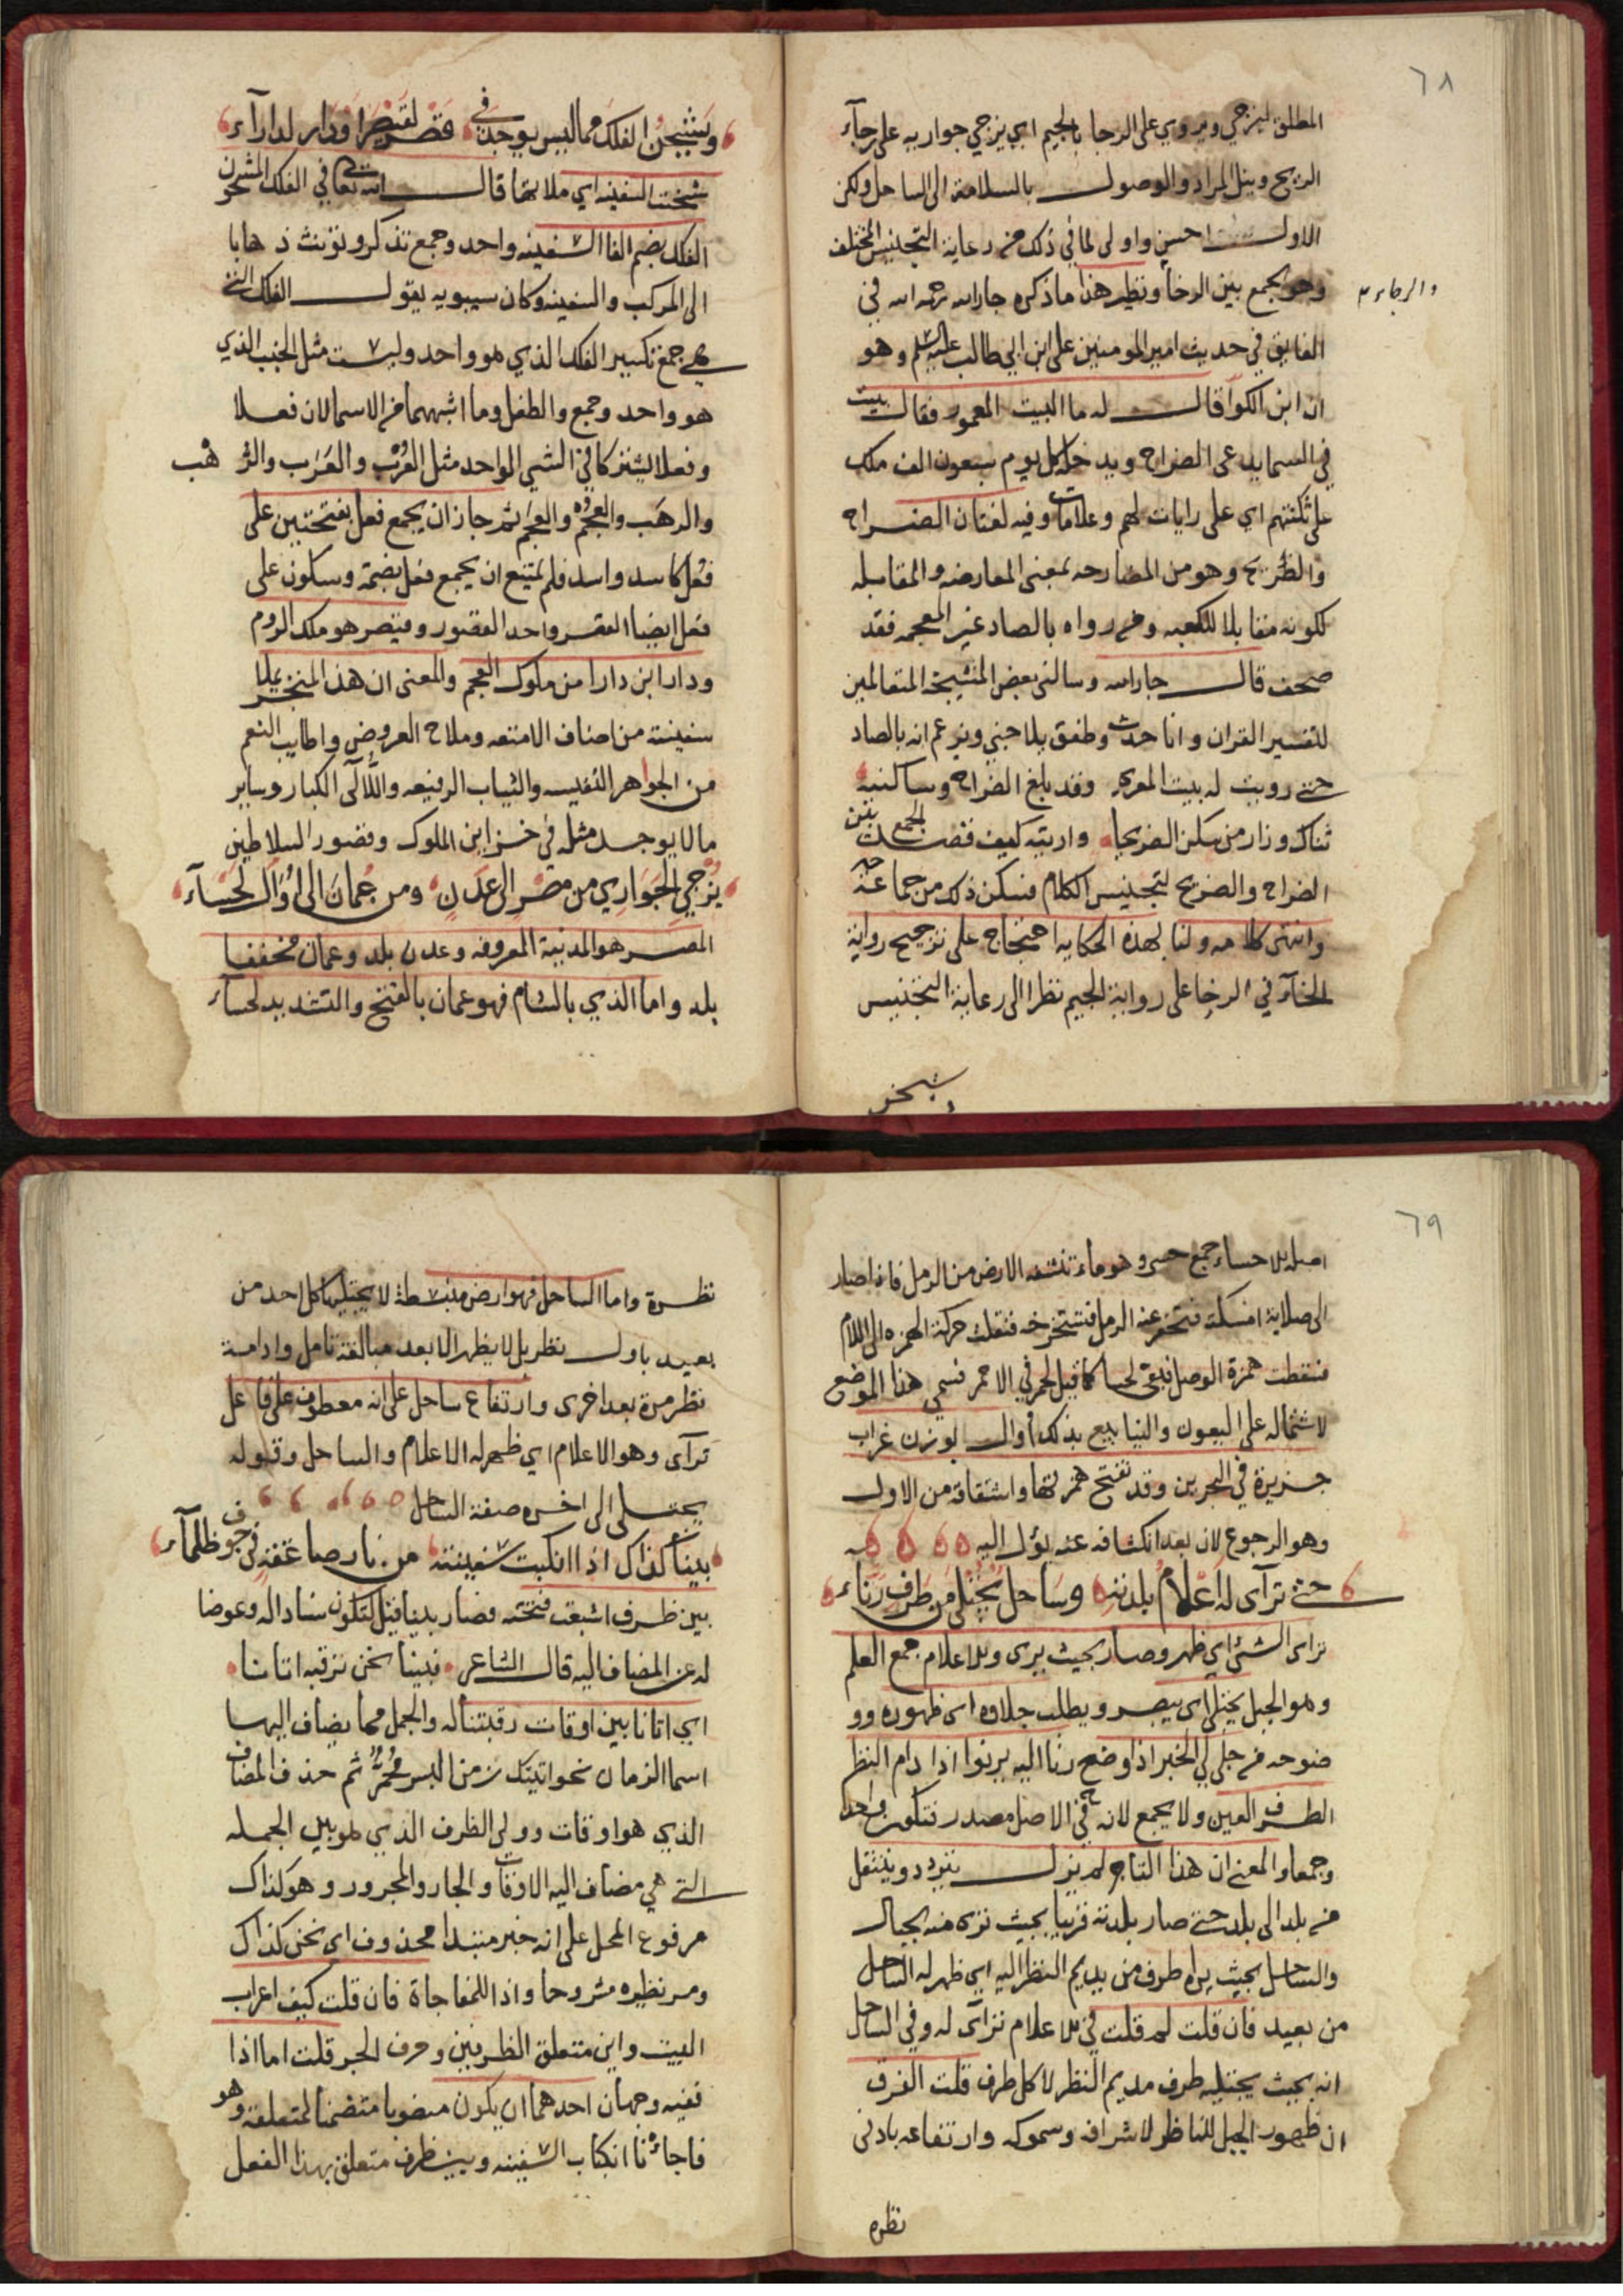 ٦٨
المطلق ليزجي ويروي على الرجا بالجيم اي يزجي جواريه على رجآء
الريح وينل المراد والوصول بالسلامة الى الساحل ولكن
الاول احسن واولى لما في ذلك من رعاية التجنيس المختلف
وهو يجمع بين الرخا ونظير هذا ما ذكره جارالله رحمه الله في
والرجا م
الفايق في حديث امير المومنين على ابن ابي طالب عليه السلم وهو
ان ابن الكوا قال له ما البيت المعمور فقال بيت
في السما يدعى الضراح ويدخله كل يوم سبعون الف ملك
على ثكنتهم اي على رايات لهم وعلامات وفيه لغتان الضراح
والضريح وهو من المضارحه بمعنى المعارضه والمقابله
لكونه مقابلا للكعبه ومن رواه بالصاد غير المعجمه فقد
صحف قال جارالله وسالني بعض المشيخة المتعالمين
لتفسير القران وانا حدث وطفق يلاجني ويزعم انه بالصاد
حتى رويت له بيت المعري وقد بلغ الضراح وساكنيه
ثناك وزار من سكن الضريحا واريته كيف قصد الجمع بين
الضراح والضريح لتجنيس الكلام فسكن ذلك من جماحه
وانتهى كلامه ولنا بهذه الحكايه احتجاج على ترجيح رواية
الخآء في الرخا على رواية الجيم نظرا الى رعاية التجنيس
ويشحن
ويشحن الفلك مما ليس يوجد في قصر لقيصر او دار لدارآء
شحنت السفينه اي ملاتها قال الله تعالى في الفلك المشحون
الفلك بضم الفا السفينه واحد وجمع تذكر وتونث ذهابا
الى المركب والسفينه وكان سيبويه يقول الفلك التي
هي جمع تكسير الفلك الذي هو واحد وليست مثل الجنب الذي
هو واحد وجمع والطفل وما اشبههما من الاسما لان فعلا
وفعلا يشتركا في الشي الواحد مثل العُرْب والعَرَب والرهب
والرهَب والعجْم والعجَم ثم جاز ان يجمع فعل بفتحتين على
فُعْل كاسد واسد فلم يمتنع ان يجمع فعل بضمة وسكون على
فعل ايضا القصر واحد القصور وقيصر هو ملك الروم
ودارا ابن دارا من ملوك العجم والمعنى ان هذا المتجر يملا
سفينته من اصناف الامتعه وملاح العروض واطايب النعم
من الجواهر النفيسه والثياب الرفيعه واللآلى الكبار وساير
ما لا يوجد مثله في خزاين الملوك وقصور السلاطين
يزجي الجواري من مصر الى عدن ومن عمان الى اوال لحسآء
المصر هو المدنية المعروفه وعدن بلد وعمان مخففا
بلد واما الذي بالشام فهو عمان بالفتح والتشديد لحسآء
٦٩
اصله بلا حساء جمع حسي وهو ماء تنشفه الارض من الرمل فاذا صار
الى صلابة امسكته فتحفر عنه الرمل فتستخرجه فنقلت حركة الهمزه الى اللام
فسقطت همزة الوصل فبقي لحسا كما قيل لحمر في الاحمر فسمي هذا الموضع
لاشتماله على العيون والينابيع بذلك اوال بوزن غراب
جزيرة في البحرين وقد تفتح همزتها واشتقاقه من الاول
وهو الرجوع لان بعد انكشافه عنه يؤل اليه
حتى ترآى له اعلام بلدته وساحل يجتلى من طرف رنآء
ترآى الشئ اي ظهر وصار بحيث يرى وبلا علام جمع العلم
وهو الجبل يجتلى اي يبصر ويطلب جلاوه اي ظهوره وو
ضوحه من جلي لي الخبر اذا وضح رنا اليه يرنوا اذا دام النظر
الطرف العين ولا يجمع لانه في الاصل مصدر فتكون واحدا
وجمعا والمعنى ان هذا التاجر لم يزل يتردد وينتقل
من بلد الى بلد حتى صار بلدته قريبا بحيث ترى منه الجبال
والساحل بحيث يراه طرف من يديم النظر اليه اي ظهر له الساحل
من بعيد فان قلت لم قلت في بلا علام ترآى له وفي الساحل
انه بحيث يجتليه طرف مديم النظر لا كل طرف قلت الفرق
ان ظهور الجبل للناظر لاشرافه وسموكه وارتفاعه بادنى
نظره
نظرة واما الساحل فهو ارض منبسطة لا يجتليها كل احد من
بعيد باول نظر بل لا يظهر الا بعد مبالغة تامل وادامة
نظر مرة بعد اخرى وارتفاع ساحل على انه معطوف على فاعل
ترآى وهو الاعلام اي ظهر له الاعلام والساحل وقوله
يجتلى الى اخره صفة الساحل
بينا كذاك اذا انكبت سفينته من نار صاعقة في جو ظلمآء
بين ظرف اشبعت فتحته فصار بينا قيل لتكون سنادا له وعوضا
له عن المضاف اليه قال الشاعر فبينا نحن نرقبه اتانا
اي اتانا بين اوقات رقبتنا له والجمل مما يضاف اليها
اسما الزمان نحو اتيتك زمن البسر محمر ثم حذف المضاف
الذي هو اوقات وولى الظرف الذي هو بين الجمله
التي هي مضاف اليه الاوقات والجار والمجرور وهو كذاك
مرفوع المحل على انه خبر مبتدا محذوف اي نحن كذاك
ومر نظيره مشروحا واذا للمفاجاة فان قلت كيف اعراب
البيت واين متعلق الظرفين وحرف الجر قلت اما اذا
ففيه وجهان احدهما ان يكون منصوبا متضمنا لمتعلقة وهو
فاجأنا انكباب السفينه وبين ظرف متعلق بهذا الفعل